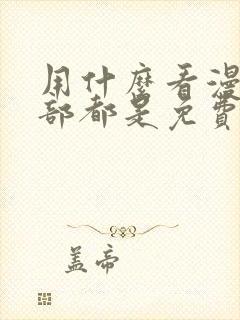 用什麼看漫
部都是免費
盖帝